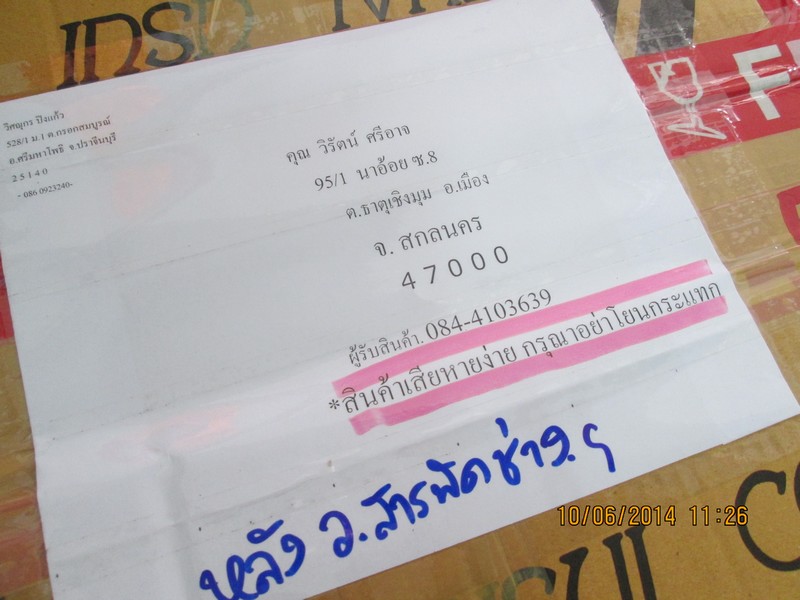 วิศณุกร ปิงแก้ว
528/1 ม.1 ต.กรอกสมบูรณ์
อ.ศรีมหาโพธิ จ.ปราจีนบุรี
2 5 1 4 0
- 086 0923240-
คุณ วิรัตน์ ศรีอาจ
95/1 นาอ้อย ซ.8
ต.ธาตุเชิงชุม อ.เมือง
จ. สกลนคร
4 7 0 0 0
ผู้รับสินค้า. 084-4103639
*สินค้าเสียหายง่าย กรุณาอย่าโยนกระแทก
หลัง ว.สารพัดช่าง.ฯ
10/06/2014 11:26